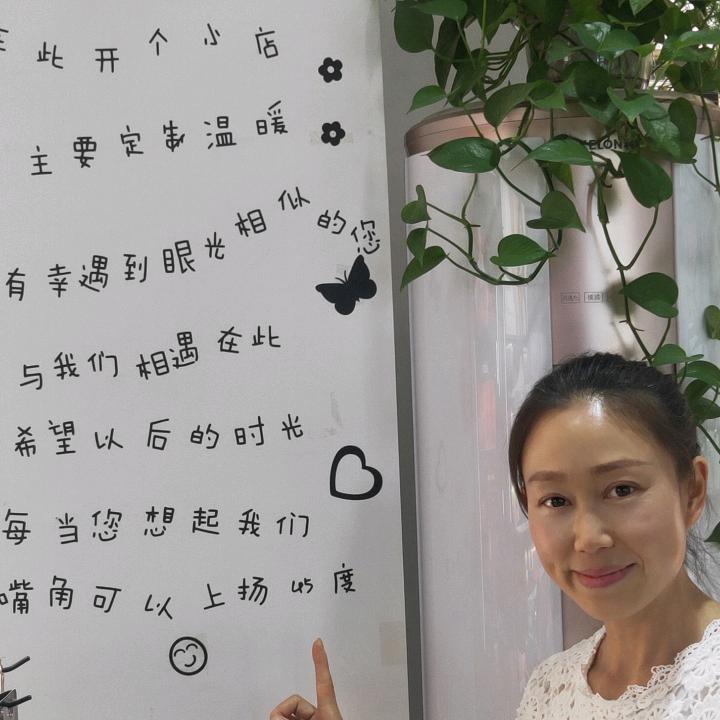 在此开个小店
主要定制温暖
有幸遇到眼光相似的您
与我们相遇在此
希望以后的时光
每当您想起我们
嘴角可以上扬45度